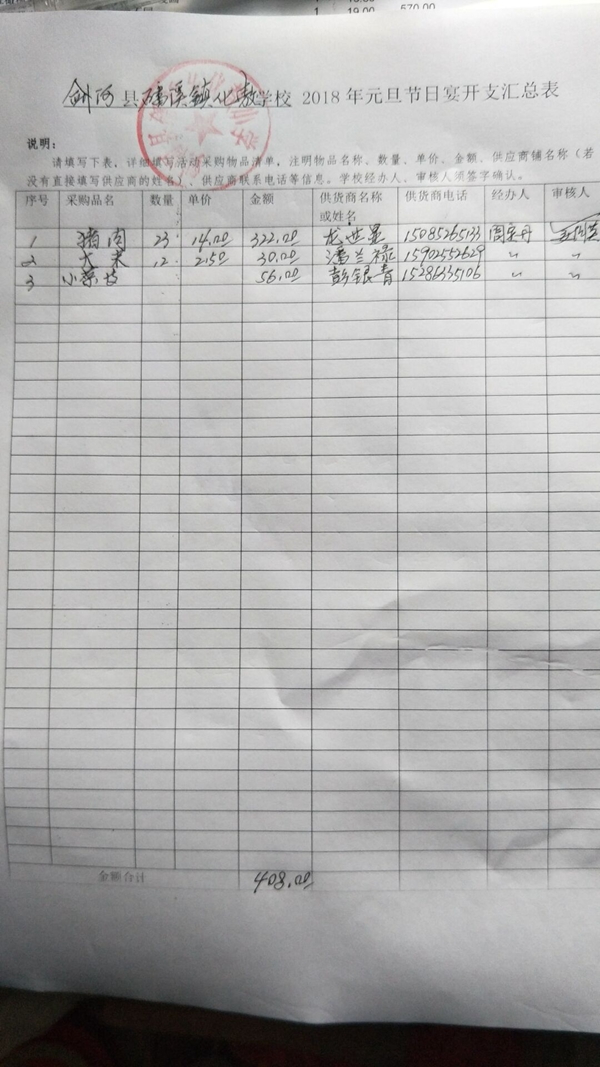 1 19.00 570.00
剑河县磻溪镇化敖学校 2018 年元旦节日宴开支汇总表
说明：
请填写下表，详细填写活动采购物品清单，注明物品名称、数量、单价、金额、供应商铺名称（若
没有直接填写供应商的姓名）、供应商联系电话等信息。学校经办人、审核人须签字确认。
序号 采购品名 数量 单价 金额 供货商名称或姓名 供货商电话 经办人 审核人
1 猪肉 23 14.00 322.00 龙世显 15085265133
2 大米 12 2.50 30.00 潘兰禄 15902552629 〃 〃
3 小菜坊 56.00 彭银青 15286335106 〃 〃
金额合计 408.00